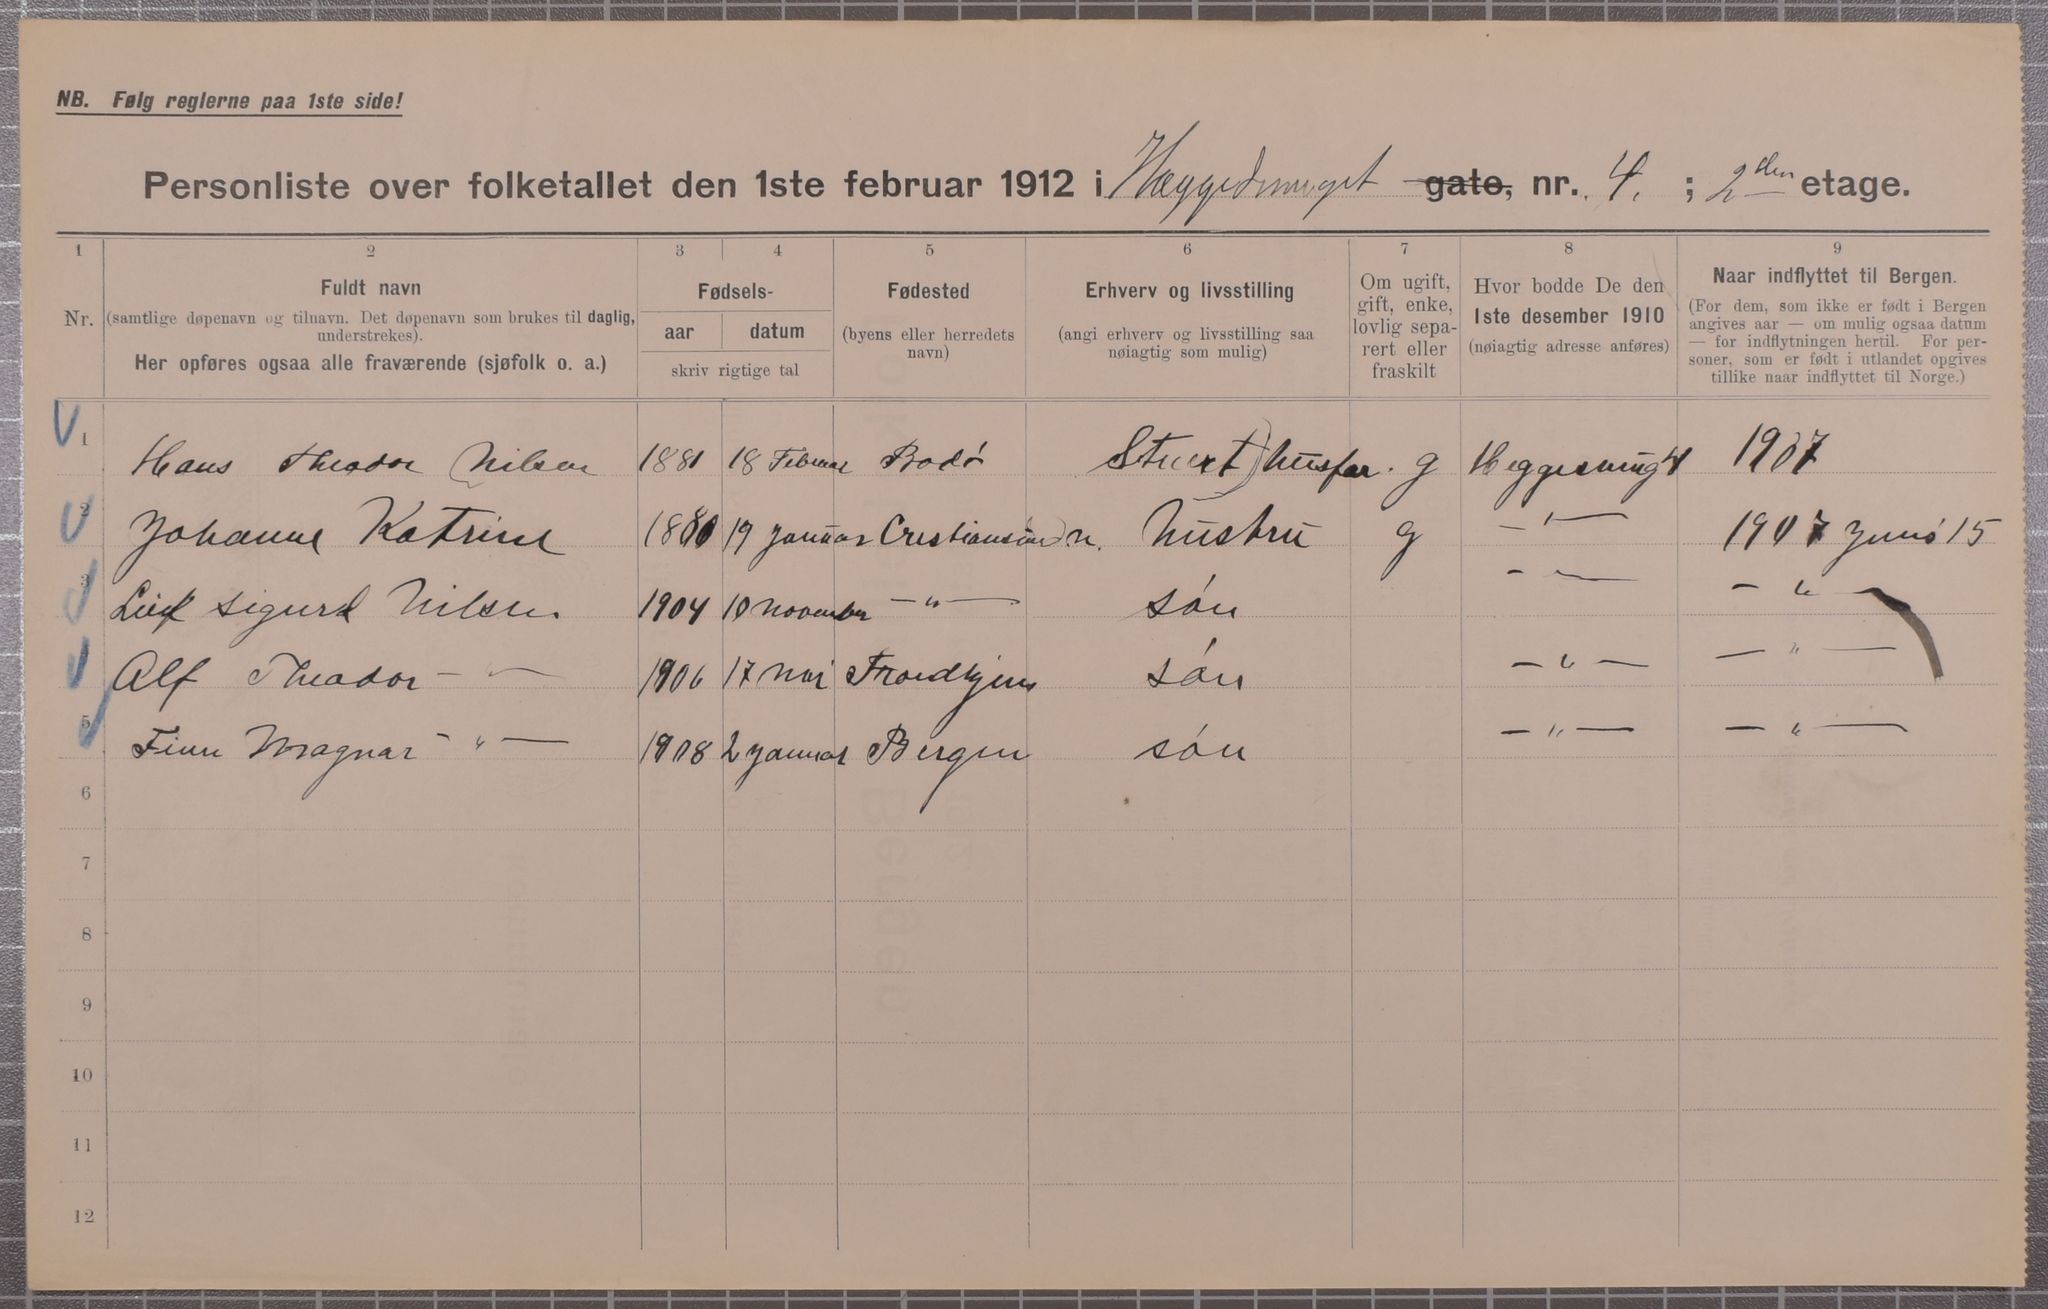 NB. Følg reglerne paa 1ste side!
Personliste over folketallet den 1ste februar 1912 i Hæggedsmuget gate, nr. 4. ; 2den etage.
1 2 3 4 5 6 7 8 9
Nr.
Fuldt navn
(samtlige døpenavn og tilnavn. Det døpenavn som brukes til daglig,
understrekes).
Her opføres ogsaa alle fraværende (sjøfolk o. a.)
Fødsels-
aar datum
skriv rigtige tal
Fødested
(byens eller herredets
navn)
Erhverv og livsstilling
(angi erhverv og livsstilling saa
nøiagtig som mulig)
Om ugift,
gift, enke,
lovlig sepa-
rert eller
fraskilt
Hvor bodde De den
1ste desember 1910
(nøiagtig adresse anføres)
Naar indflyttet til Bergen.
(For dem, som ikke er født i Bergen
angives aar — om mulig ogsaa datum
— for indflytningen hertil. For per-
soner, som er født i utlandet opgives
tillike naar indflyttet til Norge.)
1 Hans Theodor Nilsen 1881 18 Februar Bodó Stuert) husfar. g Heggesmug 4 1907
2 Johanne Katrine 1880 19 Januar Cristiansund n. Hustru g — " — 1907 Juni 15
3 Leif Sigurd Nilsen 1904 10 November — " — són — " — — " —
Alf Theodor — " — 1906 17 Mai Trondhjem són — " — — " —
5 Finn Magnar — " — 1908 2 Januar Bergen són — " — — " —
6
7
8
9
10
11
12